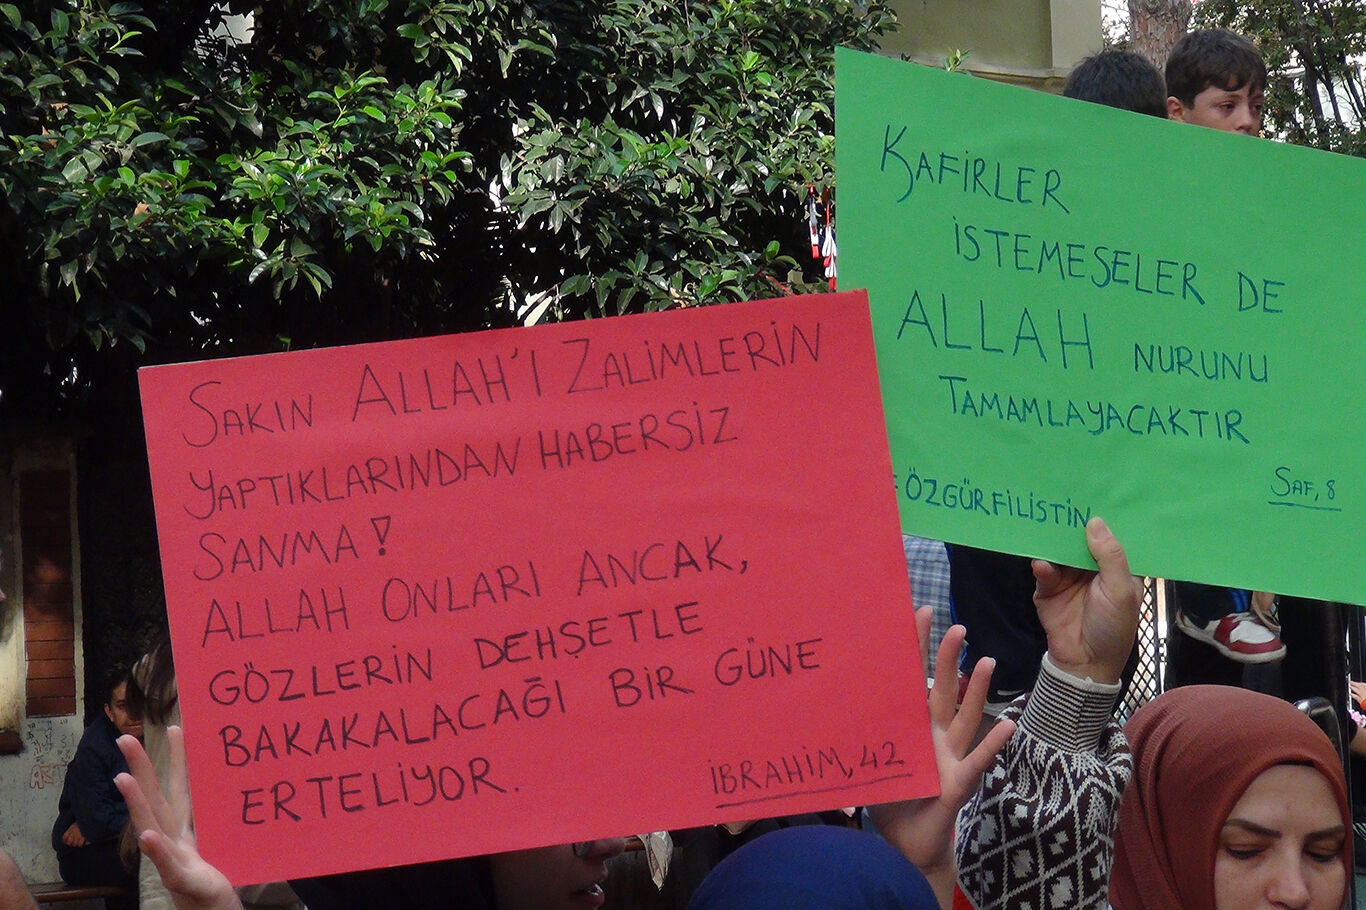 SAKIN ALLAH'I ZALİMLERİN
YAPTIKLARINDAN HABERSİZ
SANMA!
ALLAH ONLARI ANCAK,
GÖZLERİN DEHŞETLE
BAKAKALACAĞI BİR GÜNE
ERTELİYOR.
İBRAHİM, 42
KAFİRLER
İSTEMESELER DE
ALLAH NURUNU
TAMAMLAYACAKTIR
SAF, 8
#ÖZGÜRFİLİSTİN